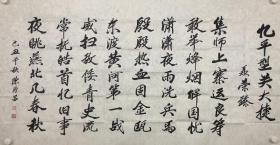 忆平型关大捷
聂荣臻
集师上寨运良筹
敢举烽烟解国忧
潇潇夜雨洗兵马
殷殷热血固金瓯
东渡黄河第一战
威扫敌倭青史流
常抚皓首忆旧事
夜眺燕北几春秋
己丑年秋